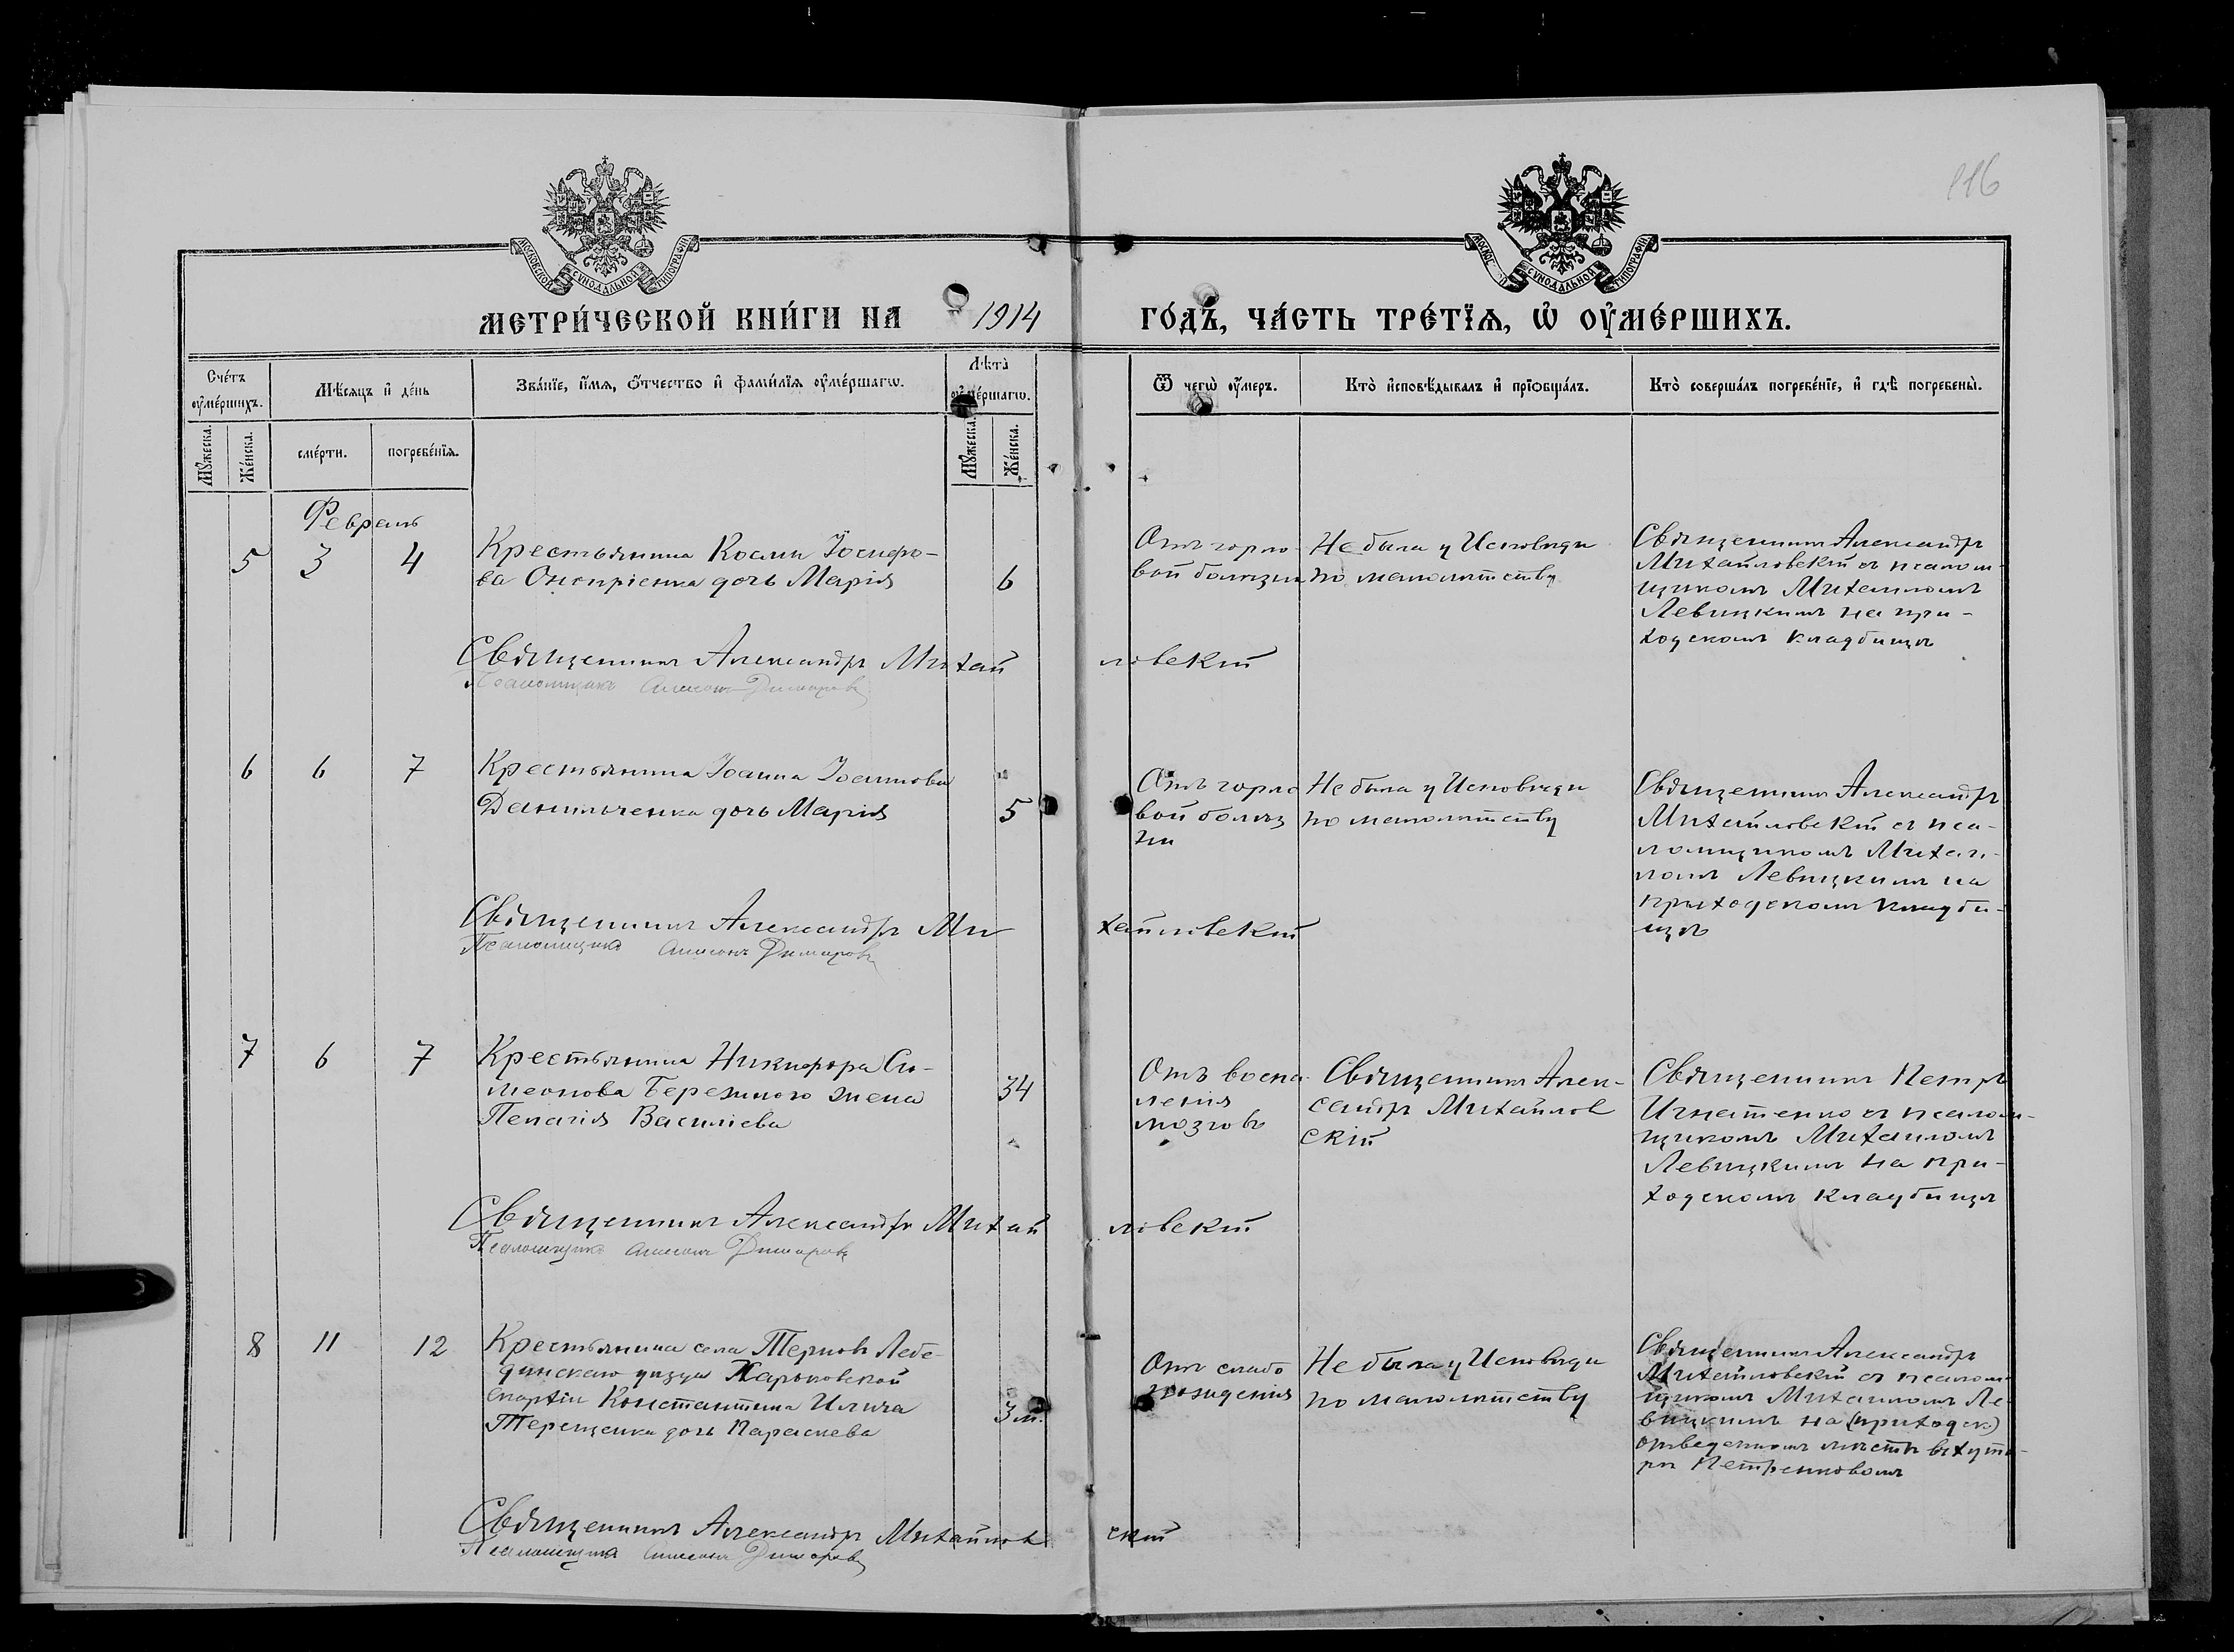 116
МОСКОВСКОЙ СѴНОДАЛЬНОЙ ТИПОГРАФІИ
СѴНОДАЛЬНОЙ ТИПОГРАФІИ
МЕТРИ́ЧЕСКОЙ КНИ́ГИ НА 1914 ГО́ДЪ, ЧА́СТЬ ТРЕ́ТЇѦ, Ѡ҆ ОУ҆МЕ́РШИХЪ.
Сче́тъ оу҆ме́ршихъ.
Мѣ́сяцъ и҆ де́нь
Зва́нїе, и҆́мѧ, ѻ҆́тчество и҆ фами́лїѧ оу҆ме́ршагѡ.
Лѣ̀та оу҆ме́ршагѡ.
Ѿ чегѡ̀ оу҆́меръ.
Кто̀ и҆сповѣ́дывалъ и҆ прїѡбща́лъ.
Кто̀ соверша́лъ погребе́нїе, и҆ гдѣ̀ погребены̀.
Мꙋ́жеска.
Же́нска.
сме́рти.
погребе́нїѧ.
Мꙋ́жеска.
Же́нска.
Февраль
5 3 4
Крестьянина Космы Іосифо-
ва Оноприенка дочь Марія
6
Отъ горло
вой болѣзни
Не была у Исповѣди
по малолѣтству
Священникъ Александръ
Михайловскій съ псалом-
щикомъ Михаиломъ
Левицкимъ на при-
ходскомъ кладбищѣ
Священникъ Александръ Михайловскій
Псаломщикъ
6 6 7
Крестьянина Іоанна Іоаннова
Данильченка дочь Марія
5
Отъ горло
вой болѣз
ни
Не была у Исповѣди
по малолѣтству
Священникъ Александръ
Михайловскій съ пса-
ломщикомъ Михаи-
ломъ Левицкимъ на
приходскомъ кладби-
щѣ
Священникъ Александръ Михайловскій
Псаломщикъ
7 6 7
Крестьянина Никифора Си-
меонова Бережного жена
Пелагія Василіева
34
Отъ воспа
ленія
мозговъ
Священникъ Алек-
сандръ Михайлов
скій
Священникъ Петръ
Игнатенко съ псалом-
щикомъ Михаиломъ
Левицкимъ на при-
ходскомъ кладбищѣ
Священникъ Александръ Михайловскій
Псаломщикъ
8 11 12
Крестьянина села Терновъ Лебе-
динскаго уѣзда Харьковской
епархіи Константина Ильича
Терещенка дочь Параскева
3 м.
Отъ слабо
рожденія
Не была у Исповѣди
по малолѣтству
Священникъ Александръ
Михайловскій съ псалом-
щикомъ Михаиломъ Ле-
вицкимъ на (приходск)
отведенномъ мѣстѣ въ хуто-
рѣ Петренковомъ
Священникъ Александръ Михайловскій
Псаломщикъ